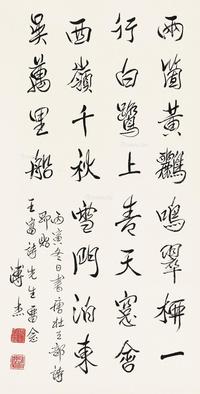 兩箇黃鸝鳴翠柳一
行白鷺上青天窓含
西嶺千秋雪門泊東
吳萬里船
丙寅冬日書唐杜工部詩
王富詩先生留念
溥杰